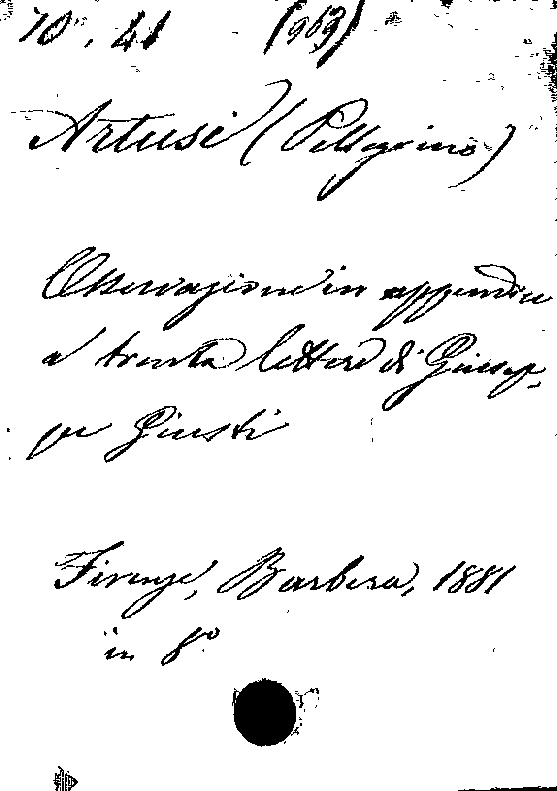 70. 41 (969)
Artusi (Pellegrino)
Osservazione in appendice
a trenta lettere di Giusep-
pe Giusti
Firenze, Barbera, 1881
in 8º